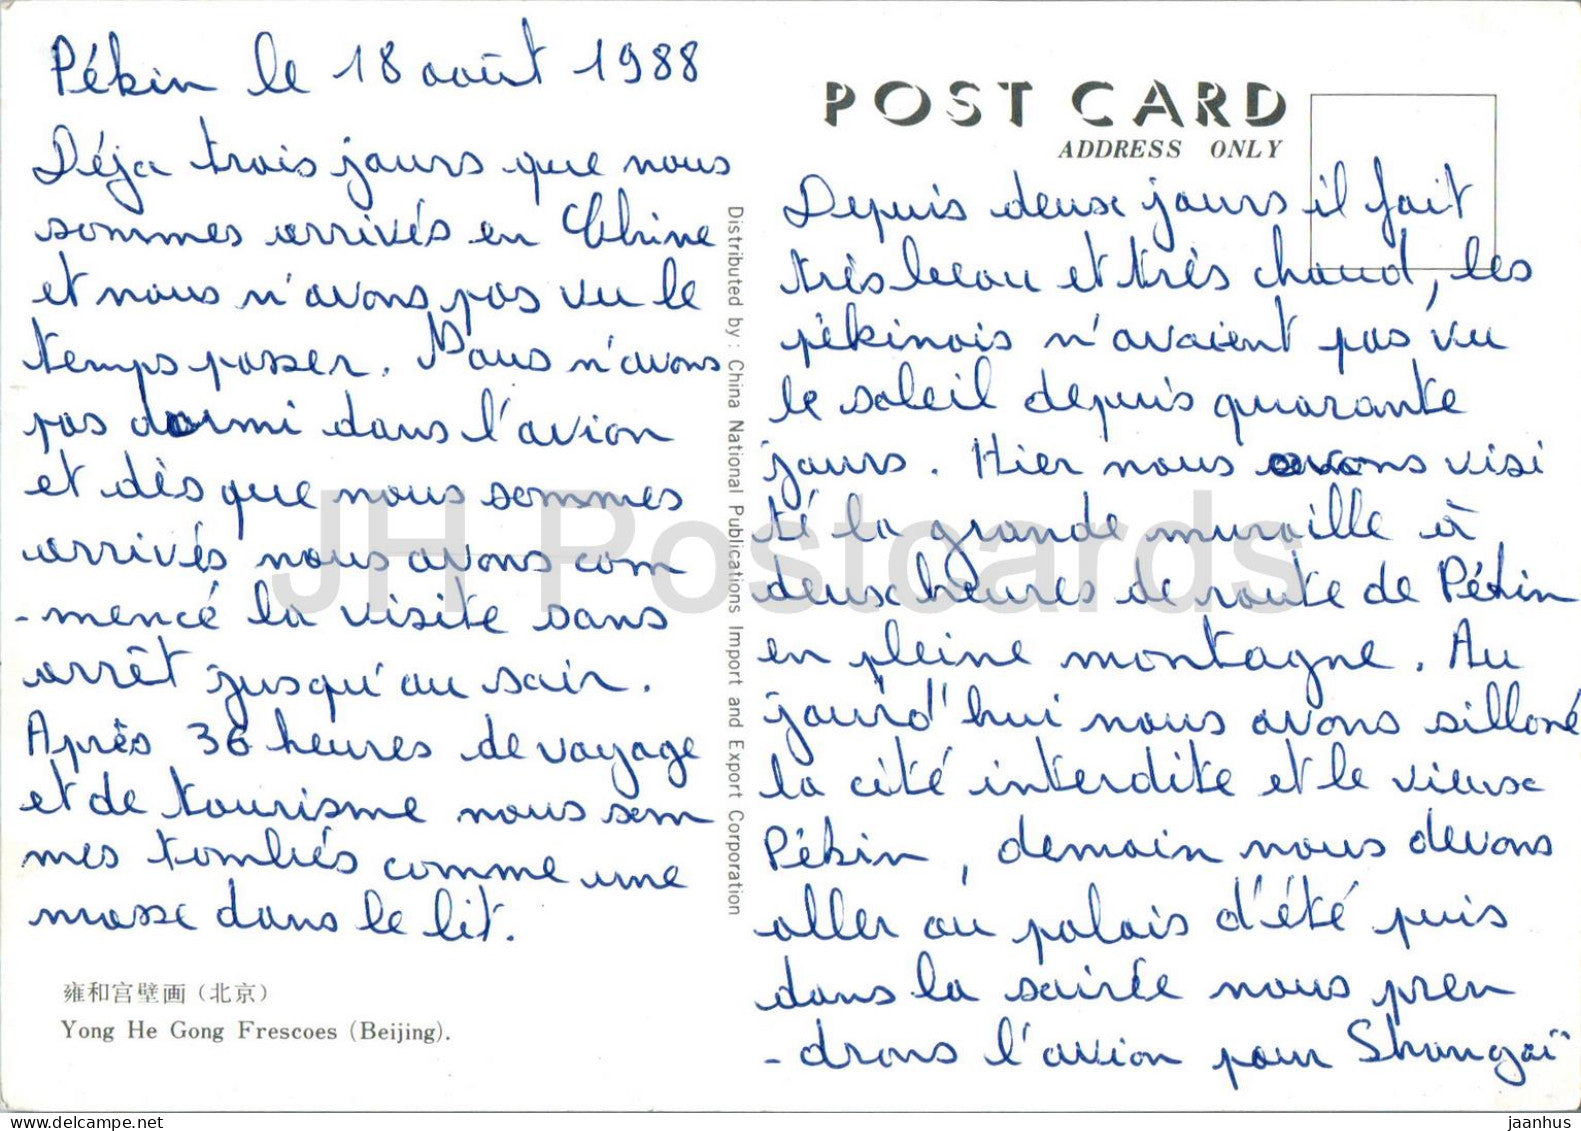 Pékin le 18 août 1988
Déja trois jours que nous
sommes arrivés en Chine
et nous n'avons pas vu le
temps passer. Nous n'avons
pas dormi dans l'avion
et dès que nous sommes
arrivés nous avons com
-mencé la visite sans
arrêt jusqu'au soir.
Après 36 heures de voyage
et de tourisme nous som
mes tombés comme une
masse dans le lit.
雍和宫壁画（北京）
Yong He Gong Frescoes (Beijing).
Distributed by: China National Publications Import and Export Corporation
POST CARD
ADDRESS ONLY
Depuis deux jours il fait
très beau et très chaud, les
pékinois n'avaient pas vu
le soleil depuis quarante
jours. Hier nous avons visi
té la grande muraille à
deux heures de route de Pékin
en pleine montagne. Au
jourd'hui nous avons silloné
la cité interdite et le vieux
Pékin, demain nous devons
aller au palais d'été puis
dans la soirée nous pren
-drons l'avion pour Shangaï
JH Postcards
www.delcampe.net
jaanhus